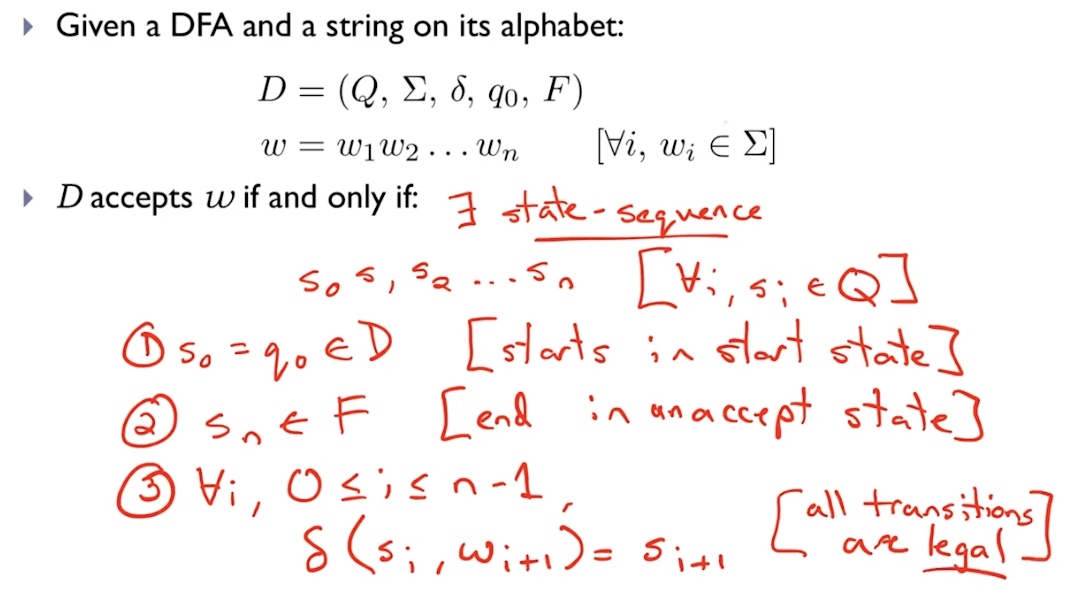 Given a DFA and a string on its alphabet:
D = (Q, Σ, δ, q₀, F)
w = w₁w₂ . . . wₙ [∀i, wᵢ ∈ Σ]
D accepts w if and only if: ∃ state-sequence
s₀ s₁ s₂ ... sₙ [∀i, sᵢ ∈ Q]
① s₀ = q₀ ∈ D [starts in start state]
② sₙ ∈ F [end in an accept state]
③ ∀i, 0 ≤ i ≤ n-1,
δ(sᵢ, wᵢ₊₁) = sᵢ₊₁ [all transitions
are legal]